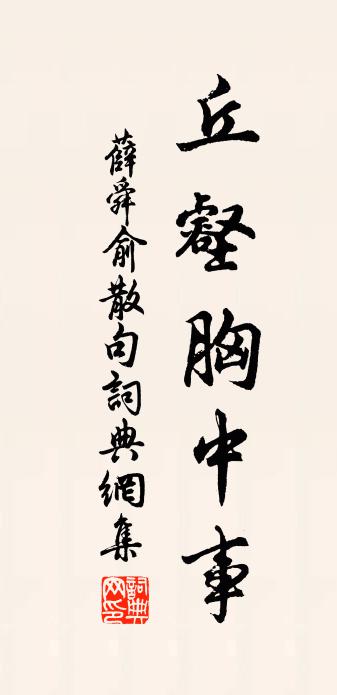 丘壑胸中事
薛舜俞散句詞典網集
詞典网印